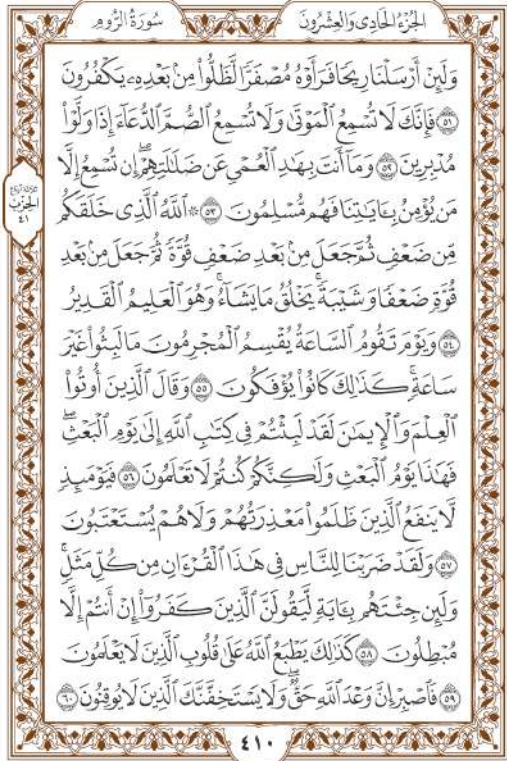 الجُزْءُ الحَادِى وَالعِشْرُونَ
سُورَةُ الرُّومِ
وَلَئِنْ أَرْسَلْنَا رِيحًا فَرَأَوْهُ مُصْفَرًّا لَّظَلُّوا۟ مِنۢ بَعْدِهِۦ يَكْفُرُونَ
٥١ فَإِنَّكَ لَا تُسْمِعُ ٱلْمَوْتَىٰ وَلَا تُسْمِعُ ٱلصُّمَّ ٱلدُّعَآءَ إِذَا وَلَّوْا۟
مُدْبِرِينَ ٥٢ وَمَآ أَنتَ بِهَٰدِ ٱلْعُمْىِ عَن ضَلَٰلَتِهِمْ ۖ إِن تُسْمِعُ إِلَّا
مَن يُؤْمِنُ بِـَٔايَٰتِنَا فَهُم مُّسْلِمُونَ ٥٣ ۞ ٱللَّهُ ٱلَّذِى خَلَقَكُم
مِّن ضَعْفٍ ثُمَّ جَعَلَ مِنۢ بَعْدِ ضَعْفٍ قُوَّةً ثُمَّ جَعَلَ مِنۢ بَعْدِ
قُوَّةٍ ضَعْفًا وَشَيْبَةً ۚ يَخْلُقُ مَا يَشَآءُ ۖ وَهُوَ ٱلْعَلِيمُ ٱلْقَدِيرُ
٥٤ وَيَوْمَ تَقُومُ ٱلسَّاعَةُ يُقْسِمُ ٱلْمُجْرِمُونَ مَا لَبِثُوا۟ غَيْرَ
سَاعَةٍ ۚ كَذَٰلِكَ كَانُوا۟ يُؤْفَكُونَ ٥٥ وَقَالَ ٱلَّذِينَ أُوتُوا۟
ٱلْعِلْمَ وَٱلْإِيمَٰنَ لَقَدْ لَبِثْتُمْ فِى كِتَٰبِ ٱللَّهِ إِلَىٰ يَوْمِ ٱلْبَعْثِ ۖ
فَهَٰذَا يَوْمُ ٱلْبَعْثِ وَلَٰكِنَّكُمْ كُنتُمْ لَا تَعْلَمُونَ ٥٦ فَيَوْمَئِذٍ
لَّا يَنفَعُ ٱلَّذِينَ ظَلَمُوا۟ مَعْذِرَتُهُمْ وَلَا هُمْ يُسْتَعْتَبُونَ
٥٧ وَلَقَدْ ضَرَبْنَا لِلنَّاسِ فِى هَٰذَا ٱلْقُرْءَانِ مِن كُلِّ مَثَلٍ ۚ
وَلَئِن جِئْتَهُم بِـَٔايَةٍ لَّيَقُولَنَّ ٱلَّذِينَ كَفَرُوٓا۟ إِنْ أَنتُمْ إِلَّا
مُبْطِلُونَ ٥٨ كَذَٰلِكَ يَطْبَعُ ٱللَّهُ عَلَىٰ قُلُوبِ ٱلَّذِينَ لَا يَعْلَمُونَ
٥٩ فَٱصْبِرْ إِنَّ وَعْدَ ٱللَّهِ حَقٌّ ۖ وَلَا يَسْتَخِفَّنَّكَ ٱلَّذِينَ لَا يُوقِنُونَ ٦٠
الحِزْبُ
٤١
٤١٠